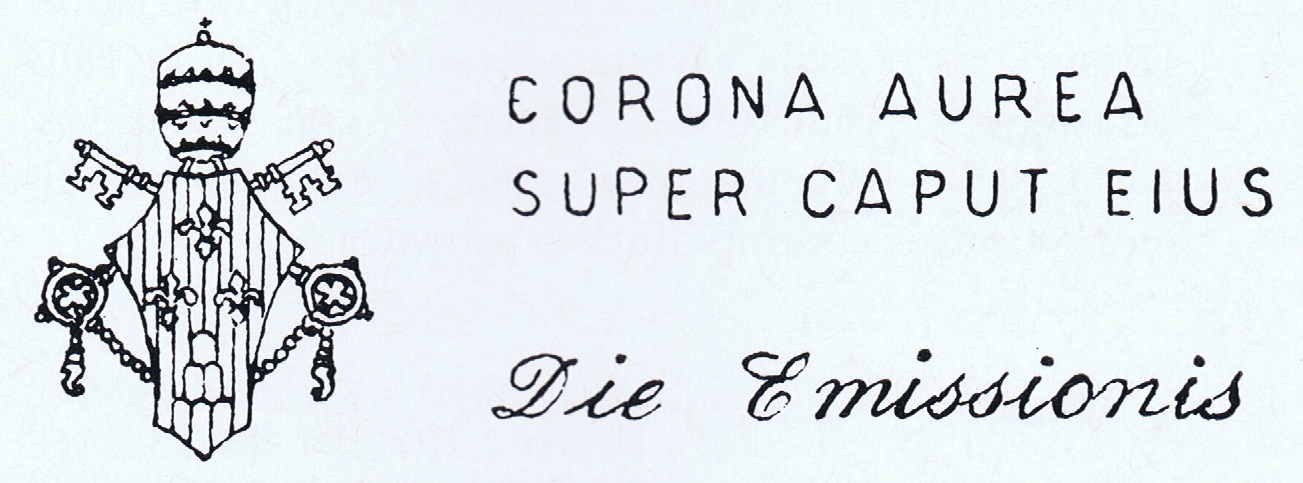 CORONA AUREA
SUPER CAPUT EIUS
Die Emissionis